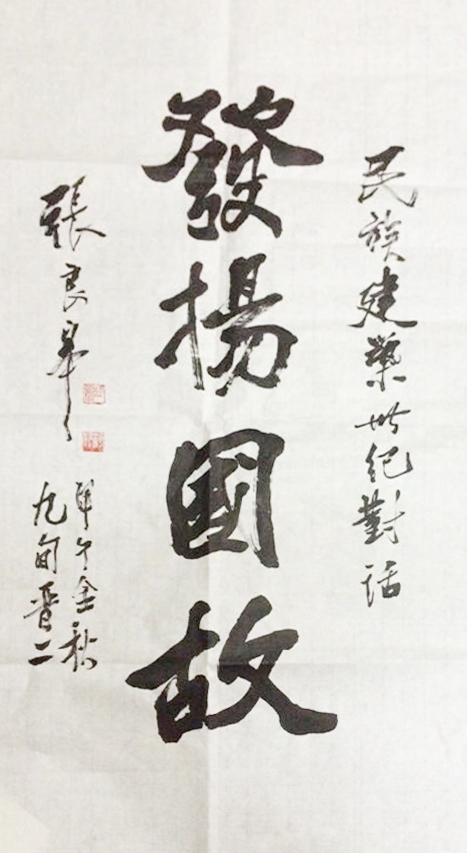 民族建築世纪對话
發揚國故
張良皋
甲午金秋
九旬晋二